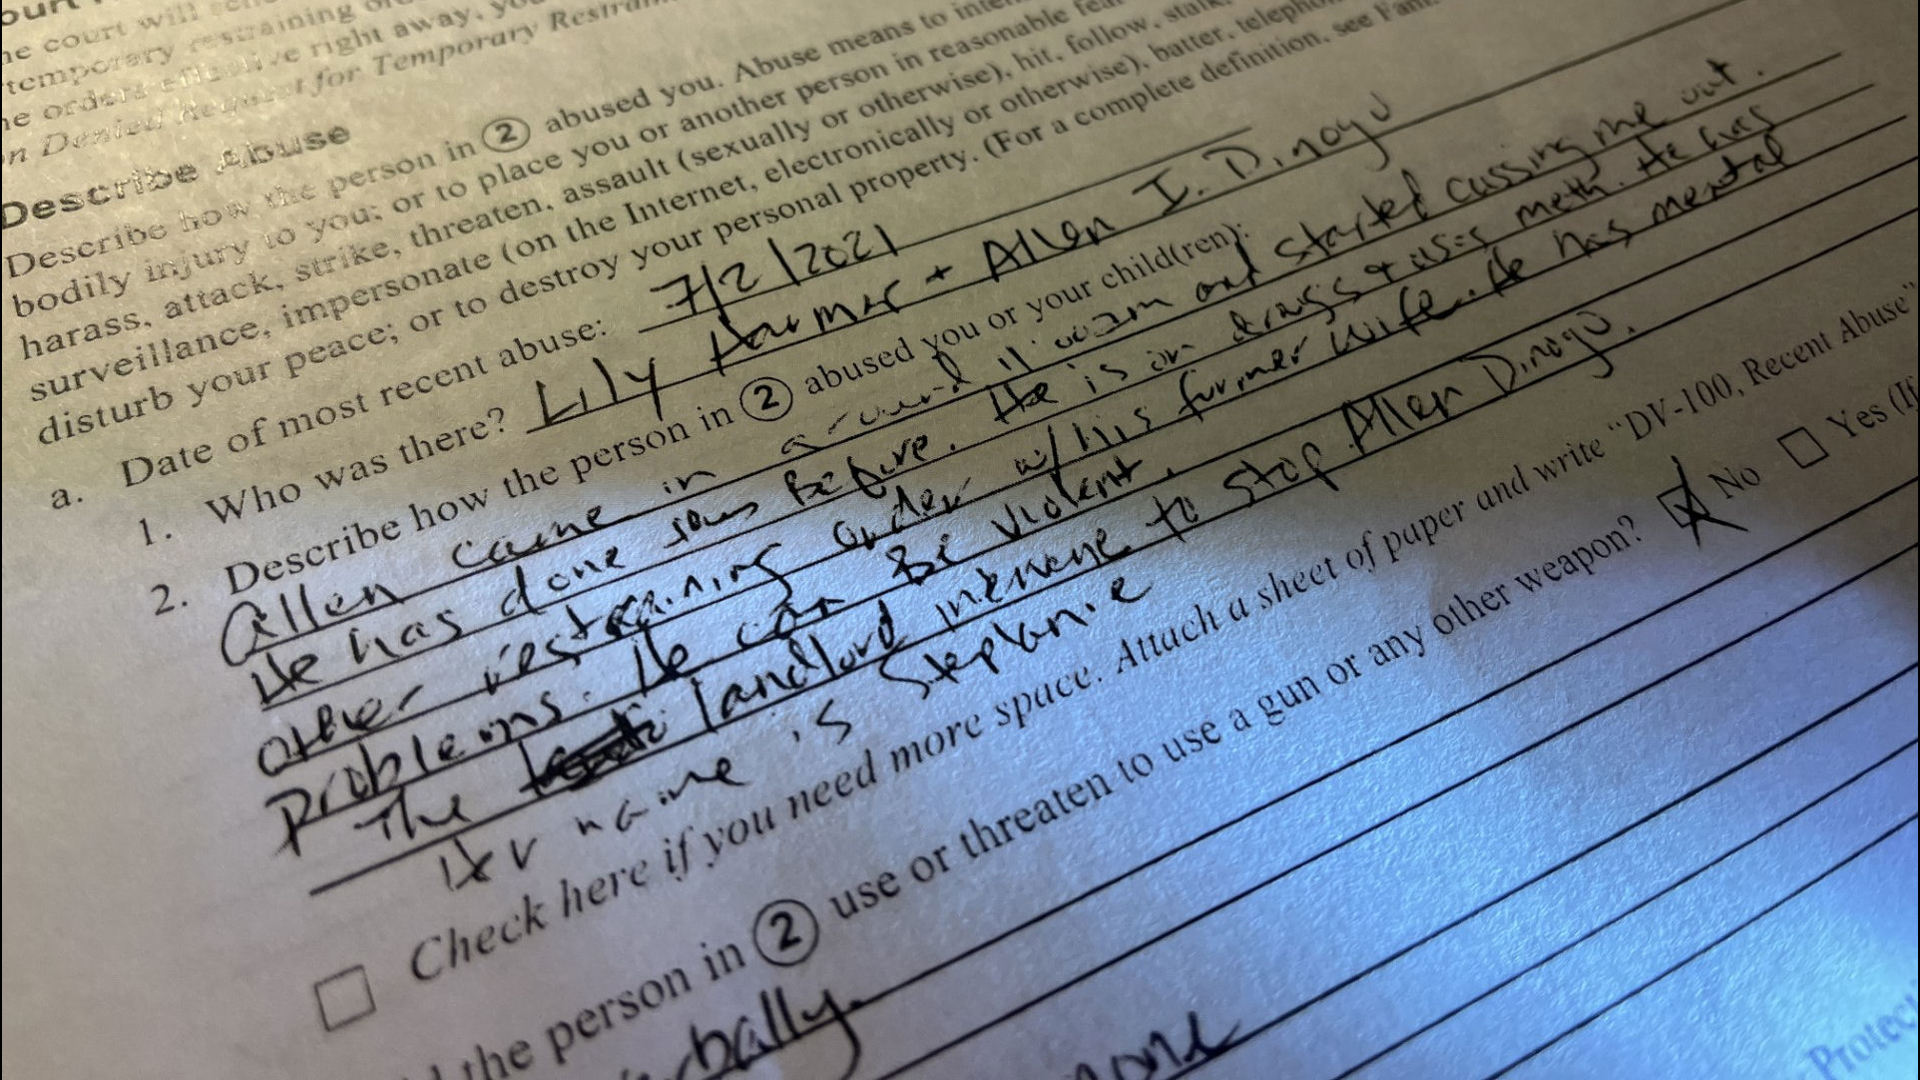 he court will
temporary restraining
he orders effective right away, yo
n Denied Request for Temporary Restrain
Describe Abuse
Describe how the person in 2 abused you. Abuse means to inten
bodily injury to you; or to place you or another person in reasonable fea
harass, attack, strike, threaten, assault (sexually or otherwise), hit, follow, stalk,
surveillance, impersonate (on the Internet, electronically or otherwise), batter, telepho
disturb your peace; or to destroy your personal property. (For a complete definition, see Fam.
a. Date of most recent abuse: 7/2/2021
1. Who was there? Lily + Allen I. Dinoyu
2. Describe how the person in 2 abused you or your child(ren):
Allen came in around 11:00am and started cussing me out.
He has done before. He is on drugs + uses meth. He has
other restraining order w/ his former wife. He has mental
problems. He can Be violent.
The landlord intervene to stop Allen Dinoyu.
Her name is Stephanie
Check here if you need more space. Attach a sheet of paper and write "DV-100, Recent Abuse"
the person in 2 use or threaten to use a gun or any other weapon? No Yes (If
bally
none
Protec